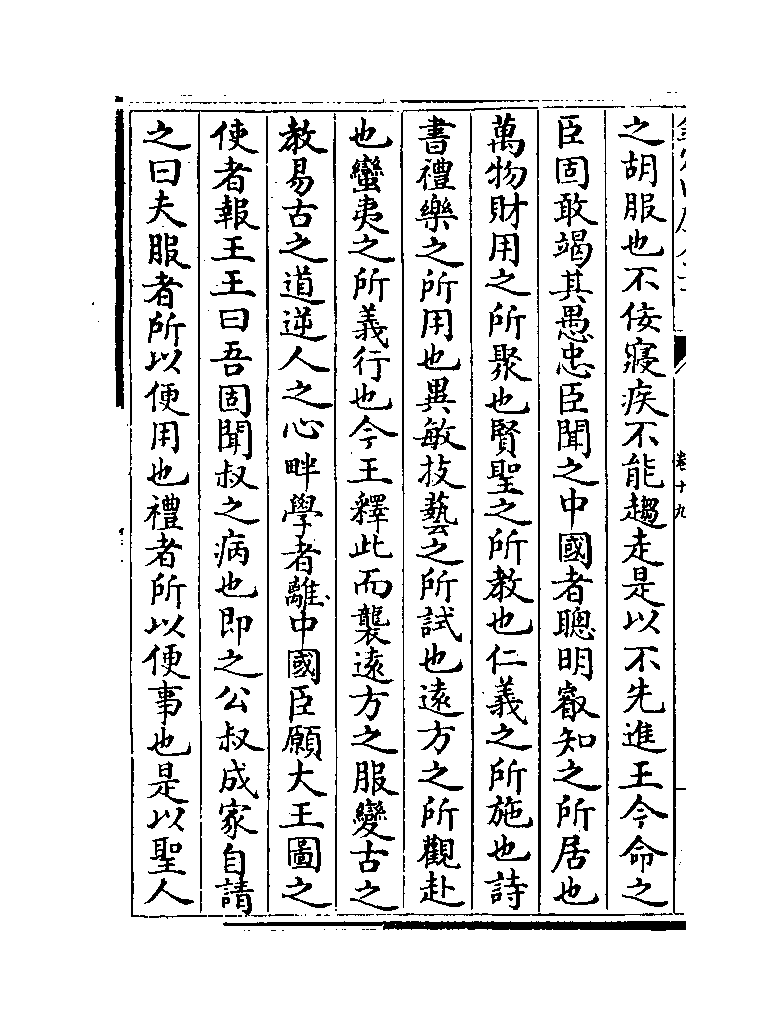 之胡服也不佞寢疾不能趨走是以不先進王今命之
臣固敢竭其愚忠臣聞之中國者聰明叡知之所居也
萬物財用之所聚也賢聖之所教也仁義之所施也詩
書禮樂之所用也異敏技藝之所試也遠方之所觀赴
也蠻夷之所義行也今王釋此而襲遠方之服變古之
教易古之道逆人之心畔學者離中國臣願大王圖之
使者報王王曰吾固聞叔之病也即之公叔成家自請
之曰夫服者所以便用也禮者所以便事也是以聖人
卷十九